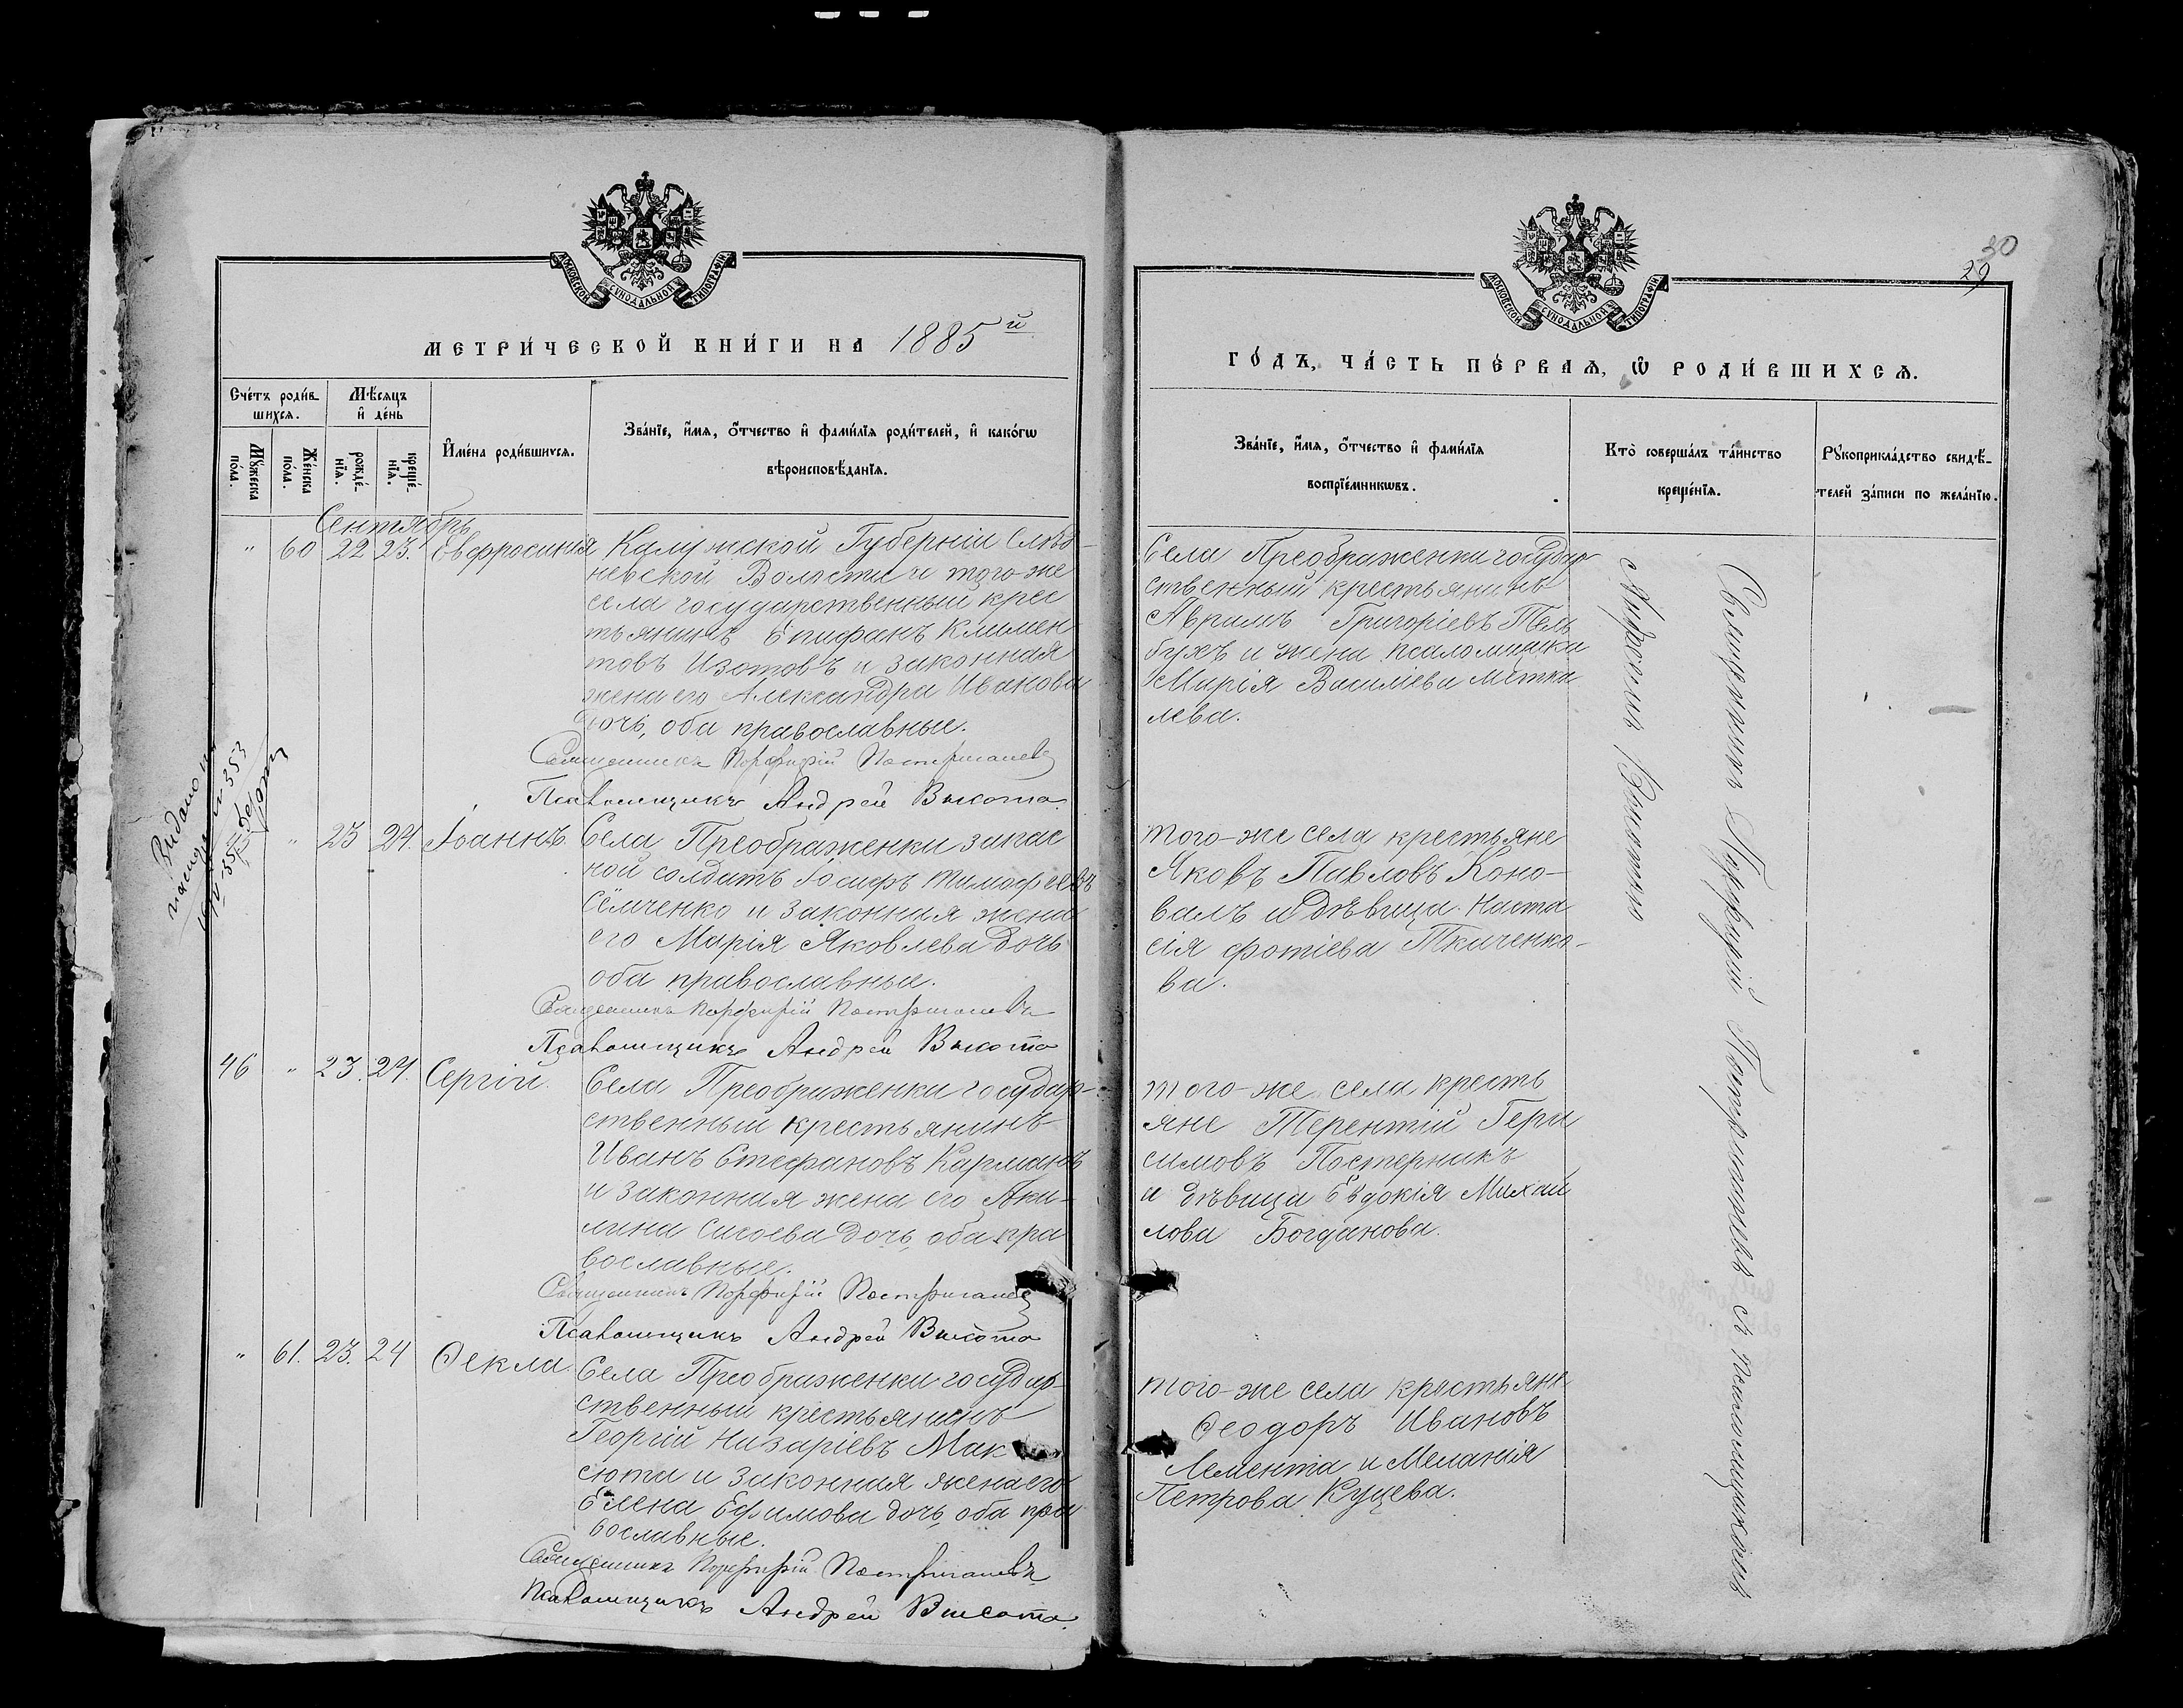 МОСКОВСКОЙ СУНОДАЛЬНОЙ ТИПОГРАФІИ
МЕТРИ́ЧЕСКОЙ КНИ́ГИ НА 1885й
Сче́тъ роди́в-
шихсѧ.
Мѣ́сѧцъ
и҆ де́нь
Мꙋ́жеска
по́ла.
Же́нска
по́ла.
рожде́-
нїѧ.
креще́-
нїѧ.
И҆мена̀ роди́вшихсѧ.
Зва́нїе, и҆́мѧ, ѻ҆́тчество и҆ фами́лїѧ роди́телей, и҆ како́гѡ
вѣроисповѣ́данїѧ.
Сентябрь
" 60 22 23. Евфросинія
Калужской Губерніи
невской Волости и того-же
села государственный крес
тьянинъ Епифанъ Климен-
товъ Изотовъ и законная
жена его Александра Иванова
дочь, оба православные.
Священникъ Порфирій Постригачевъ
Псаломщикъ Андрей Высота.
Выдано
353
" 23 24. Іоаннъ.
Села Преображенки запас
ной солдатъ Іосифъ Тимофеевъ
Сёмченко и законная жена
его Марія Яковлева дочь
оба православные.
Священникъ Порфирій Постригачевъ
Псаломщикъ Андрей Высота
46 " 23. 24. Сергій.
Села Преображенки государ-
ственный крестьянинъ
Иванъ Стефановъ Кармановъ
и законная жена его Аки-
лина Сисоева дочь, оба пра
вославные.
Священникъ Порфирій Постригачевъ
Псаломщикъ Андрей Высота
" 61. 23. 24 Ѳекла.
Села Преображенки государ-
ственный крестьянинъ
Георгій Назаріевъ Мак
сюта и законная жена его
Елена Ефимова дочь, оба пра
вославные.
Священникъ Порфирій Постригачевъ
Псаломщикъ Андрей Высота.
30
29
МОСКОВСКОЙ СУНОДАЛЬНОЙ ТИПОГРАФІИ
ГО́ДЪ, ЧА́СТЬ ПЕ́РВАѦ, Ѽ РОДИ́ВШИХСѦ.
Зва́нїе, и҆́мѧ, ѻ҆́тчество и҆ фами́лїѧ
воспрїе́мникѡвъ.
Кто̀ соверша́лъ та́инство
креще́нїѧ.
Рꙋкоприкла́дство свидѣ́-
телей за́писи по жела́нїю.
Села Преображенки государ
ственный крестьянинъ
Аврамъ Григоріевъ Тель
бухъ и жена псаломщика
Марія Василіева Метка
лева.
того-же села крестьяне
Яковъ Павловъ Коно-
валъ и дѣвица Наста
сія Фотіева Ткаченко-
ва.
того-же села кресть
яне Терентій Гера
симовъ Постерникъ
и дѣвица Евдокія Михай
лова Богданова.
того-же села крестьяне
Ѳеодоръ Ивановъ
Лемента и Меланія
Петрова Куцева.
Священникъ Порфирій Постригачевъ съ псаломщикомъ
Андреемъ Высотою